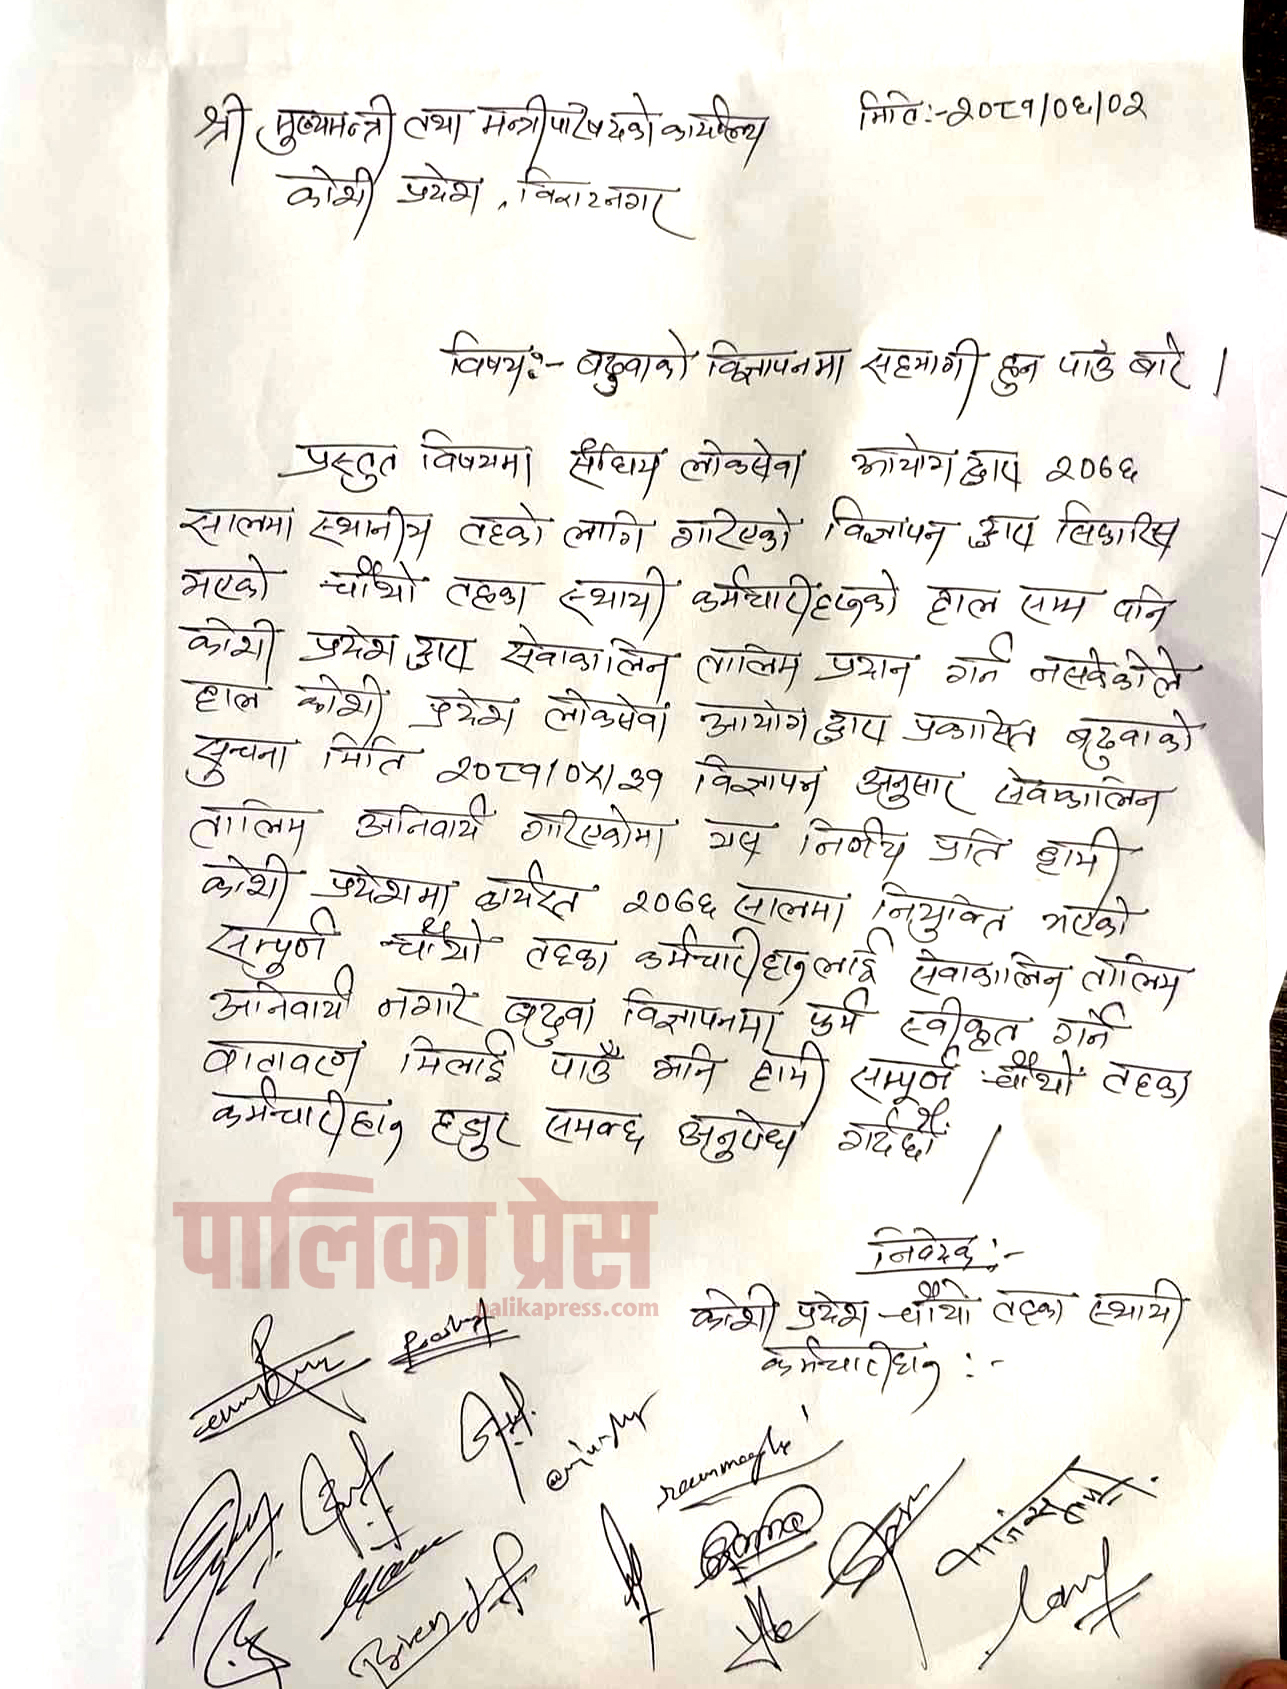 मिति:-२०८१/०६/०२
श्री मुख्यमन्त्री तथा मन्त्रीपरिषदको कार्यालय
कोशी प्रदेश, विराटनगर
विषय:- बढुवाको विज्ञापनमा सहभागी हुन पाउँ बारे ।
प्रस्तुत विषयमा संघिय लोकसेवा आयोग द्वारा २०७६
सालमा स्थानीय तहको लागि गरिएको विज्ञापन द्वारा सिफारिस
भएको चौथो तहका स्थायी कर्मचारीहरुको हाल सम्म पनि
कोशी प्रदेश द्वारा सेवाकालिन तालिम प्रदान गर्न नसकेकोले
हाल कोशी प्रदेश लोकसेवा आयोग द्वारा प्रकासित बढुवाको
सुचना मिति २०८१/०५/३१ विज्ञापन अनुसार सेवाकालिन
तालिम अनिवार्य गरिएकोमा यस निर्णय प्रति हामी
कोशी प्रदेशमा कार्यरत २०७६ सालमा नियुक्ति भएको
सम्पूर्ण चौथो तहका कर्मचारीहरुलाई सेवाकालिन तालिम
अनिवार्य नगरि बढुवा विज्ञापनमा फर्म स्वीकृत गर्ने
वातावरण मिलाई पाउँ भनि हामी सम्पूर्ण चौथो तहका
कर्मचारीहरु हजुर समक्ष अनुरोध गर्दछौं ।
निवेदक :-
कोशी प्रदेश चौथो तहका स्थायी
कर्मचारीहरु :-
पालिका प्रेस
palikapress.com